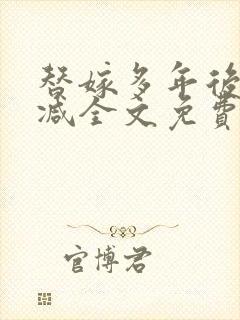 替嫁多年後
减全文免費
官博君